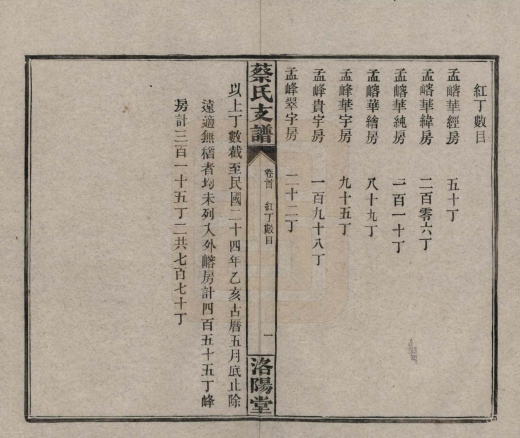 紅丁數目
孟嵱華經房 五十丁
孟嵱華緯房 二百零六丁
孟嵱華純房 一百一十丁
孟嵱華繪房 八十九丁
孟峰華字房 九十五丁
孟峰貴字房 一百九十八丁
孟峰翠字房 二十二丁
蔡氏支譜
卷首 紅丁數目
一
洛陽堂
以上丁數截至民國二十四年乙亥古曆五月底止除
遠適無稽者均未列入外嵱房計四百五十五丁峰
房計三百一十五丁二共七百七十丁